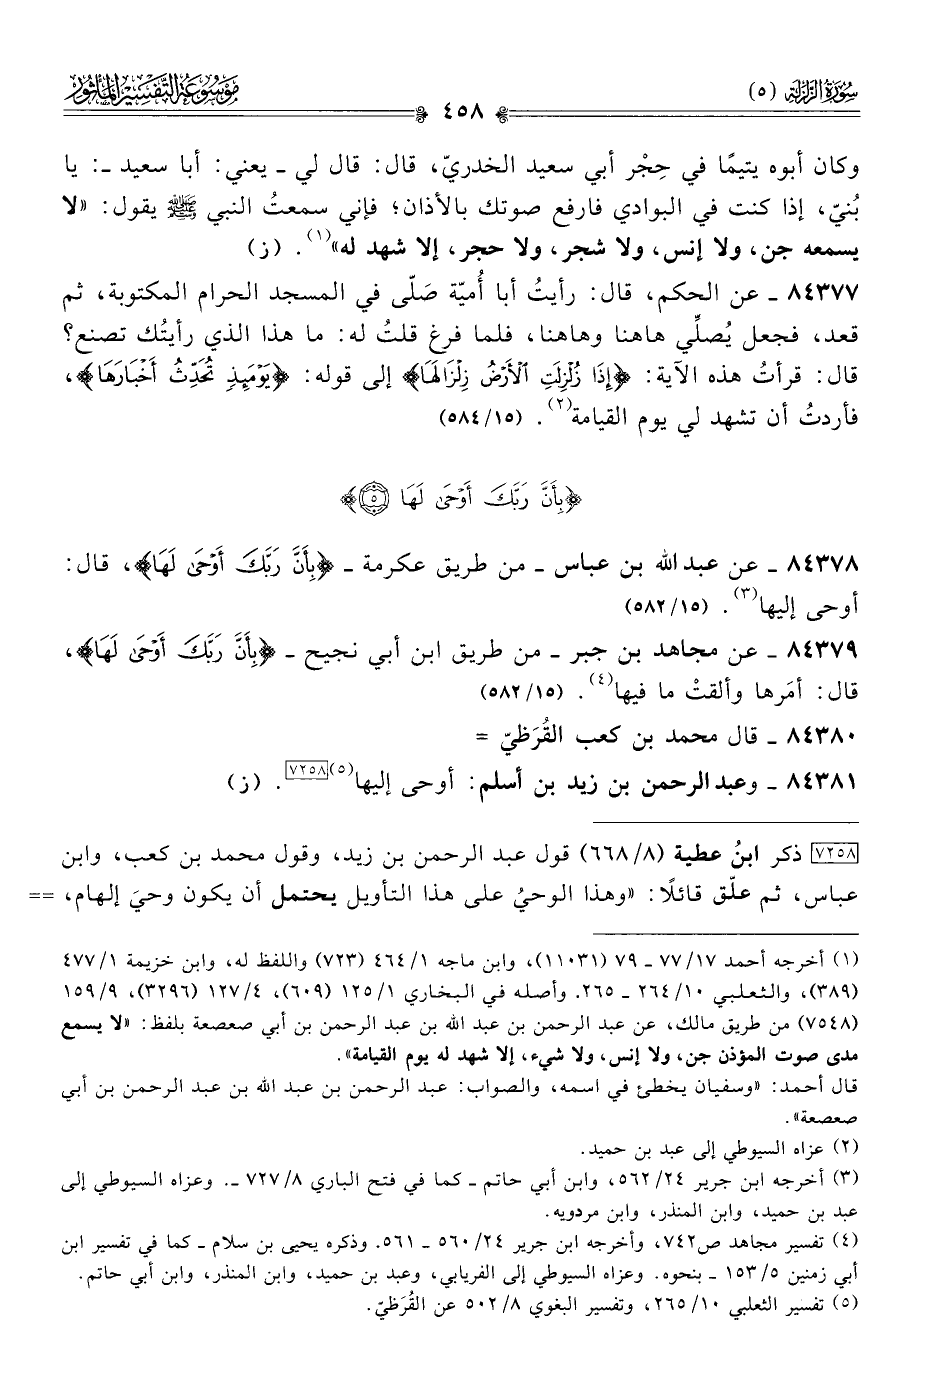 سُورَةُ الزَّلْزَلَة (٥)
٤٥٨
مَوْسُوعَةُ التَّفْسِيرِ المَأْثُورِ
وكان أبوه يتيمًا في حِجْر أبي سعيد الخدريّ، قال: قال لي ـ يعني: أبا سعيد ـ: يا
بُنيّ، إذا كنت في البوادي فارفع صوتك بالأذان؛ فإني سمعتُ النبي ﷺ يقول: «لا
يسمعه جن، ولا إنس، ولا شجر، ولا حجر، إلا شهد له»(١). (ز)
٨٤٣٧٧ ـ عن الحكم، قال: رأيتُ أبا أُميّة صَلّى في المسجد الحرام المكتوبة، ثم
قعد، فجعل يُصلِّي هاهنا وهاهنا، فلما فرغ قلتُ له: ما هذا الذي رأيتُك تصنع؟
قال: قرأتُ هذه الآية: ﴿إِذَا زُلْزِلَتِ ٱلْأَرْضُ زِلْزَالَهَا﴾ إلى قوله: ﴿يَوْمَئِذٍ تُحَدِّثُ أَخْبَارَهَا﴾،
فأردتُ أن تشهد لي يوم القيامة(٢). (١٥/ ٥٨٤)
﴿بِأَنَّ رَبَّكَ أَوْحَىٰ لَهَا ٥﴾
٨٤٣٧٨ ـ عن عبد الله بن عباس ـ من طريق عكرمة ـ ﴿بِأَنَّ رَبَّكَ أَوْحَىٰ لَهَا﴾، قال:
أوحى إليها(٣). (١٥/ ٥٨٢)
٨٤٣٧٩ ـ عن مجاهد بن جبر ـ من طريق ابن أبي نجيح ـ ﴿بِأَنَّ رَبَّكَ أَوْحَىٰ لَهَا﴾،
قال: أمَرها وألقتْ ما فيها(٤). (١٥/ ٥٨٢)
٨٤٣٨٠ ـ قال محمد بن كعب القُرَظيّ =
٨٤٣٨١ ـ وعبد الرحمن بن زيد بن أسلم: أوحى إليها(٥)[٧٢٥٨]. (ز)
[٧٢٥٨] ذكر ابنُ عطية (٨/ ٦٦٨) قول عبد الرحمن بن زيد، وقول محمد بن كعب، وابن
عباس، ثم علّق قائلًا: «وهذا الوحيُ على هذا التأويل يحتمل أن يكون وحيَ إلهام، ==
(١) أخرجه أحمد ١٧/ ٧٧ ـ ٧٩ (١١٠٣١)، وابن ماجه ١/ ٤٦٤ (٧٢٣) واللفظ له، وابن خزيمة ١/ ٤٧٧
(٣٨٩)، والثعلبي ١٠/ ٢٦٤ ـ ٢٦٥. وأصله في البخاري ١/ ١٢٥ (٦٠٩)، ٤/ ١٢٧ (٣٢٩٦)، ٩/ ١٥٩
(٧٥٤٨) من طريق مالك، عن عبد الرحمن بن عبد الله بن عبد الرحمن بن أبي صعصعة بلفظ: «لا يسمع
مدى صوت المؤذن جن، ولا إنس، ولا شيء، إلا شهد له يوم القيامة».
قال أحمد: «وسفيان يخطئ في اسمه، والصواب: عبد الرحمن بن عبد الله بن عبد الرحمن بن أبي
صعصعة».
(٢) عزاه السيوطي إلى عبد بن حميد.
(٣) أخرجه ابن جرير ٢٤/ ٥٦٢، وابن أبي حاتم ـ كما في فتح الباري ٨/ ٧٢٧ ـ. وعزاه السيوطي إلى
عبد بن حميد، وابن المنذر، وابن مردويه.
(٤) تفسير مجاهد ص٧٤٢، وأخرجه ابن جرير ٢٤/ ٥٦٠ ـ ٥٦١. وذكره يحيى بن سلام ـ كما في تفسير ابن
أبي زمنين ٥/ ١٥٣ ـ بنحوه. وعزاه السيوطي إلى الفريابي، وعبد بن حميد، وابن المنذر، وابن أبي حاتم.
(٥) تفسير الثعلبي ١٠/ ٢٦٥، وتفسير البغوي ٨/ ٥٠٢ عن القُرَظيّ.